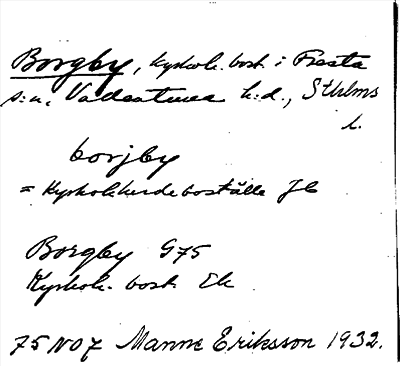 Borgby, kyrkoh. bost. i Fresta
s:n, Vallentuna h:d., Sthlms
l.
borjby
= Kyrkoherdeboställe JE
Borgby G75
Kyrkoh. bost. Ek
75 NO7 Manne Eriksson 1932.